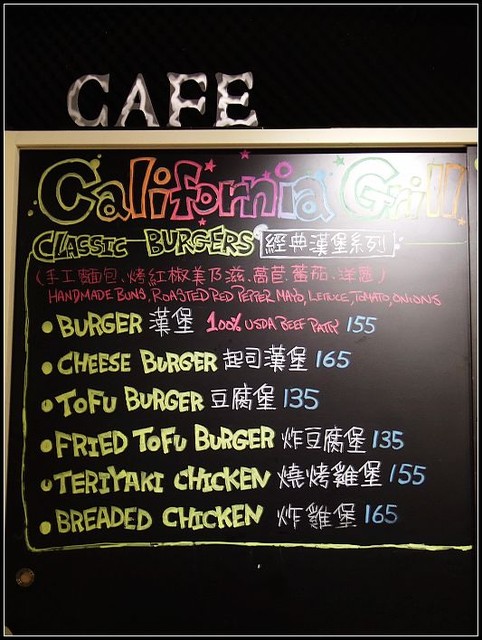 CAFE
California Grill
CLASSIC BURGERS 經典漢堡系列
(手工麵包、烤紅椒美乃滋、萵苣、蕃茄、洋蔥)
HANDMADE BUNS, ROASTED RED PEPPER MAYO, LETTUCE, TOMATO, ONIONS
• BURGER 漢堡 100% USDA BEEF PATTY 155
• CHEESE BURGER 起司漢堡 165
• TOFU BURGER 豆腐堡 135
• FRIED TOFU BURGER 炸豆腐堡 135
• TERIYAKI CHICKEN 燒烤雞堡 155
• BREADED CHICKEN 炸雞堡 165